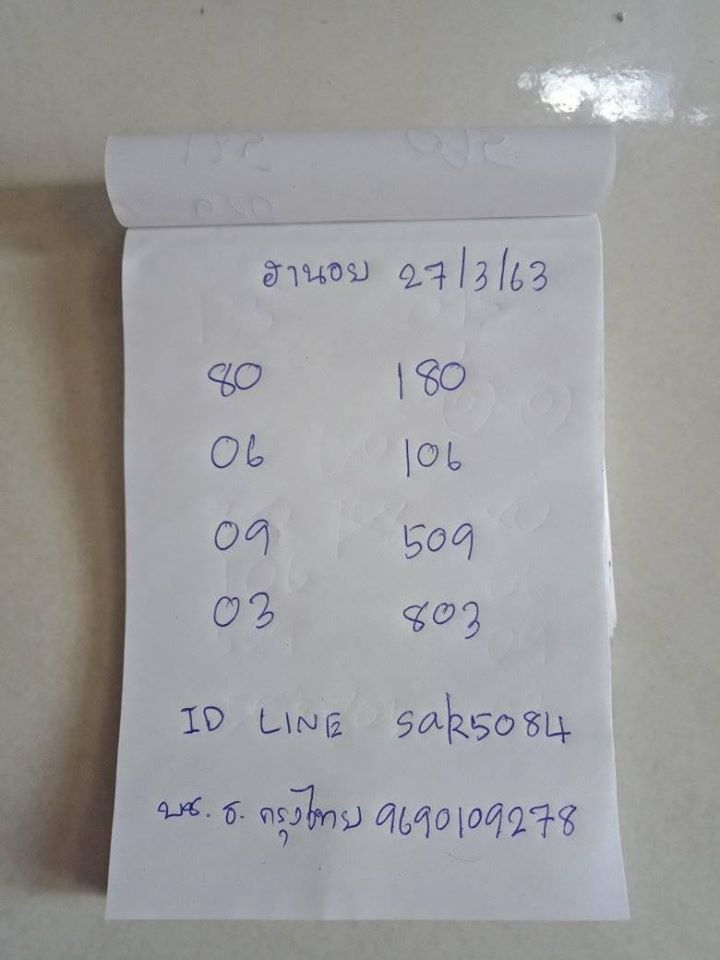 ฮานอย 27/3/63
80 180
06 106
09 509
03 803
ID LINE sak5084
บช. ธ. กรุงไทย 9690109278